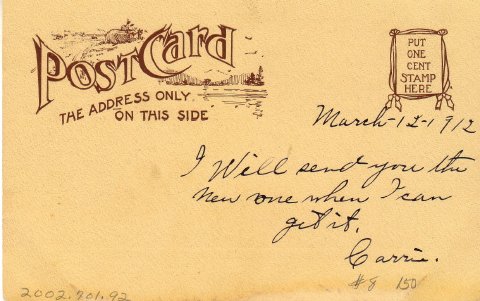 POSTCARD
THE ADDRESS ONLY
ON THIS SIDE
PUT
ONE
CENT
STAMP
HERE
March-12-1912
I Will send you the
new one when I can
get it.
Carrie.
#8 150
2002.701.92